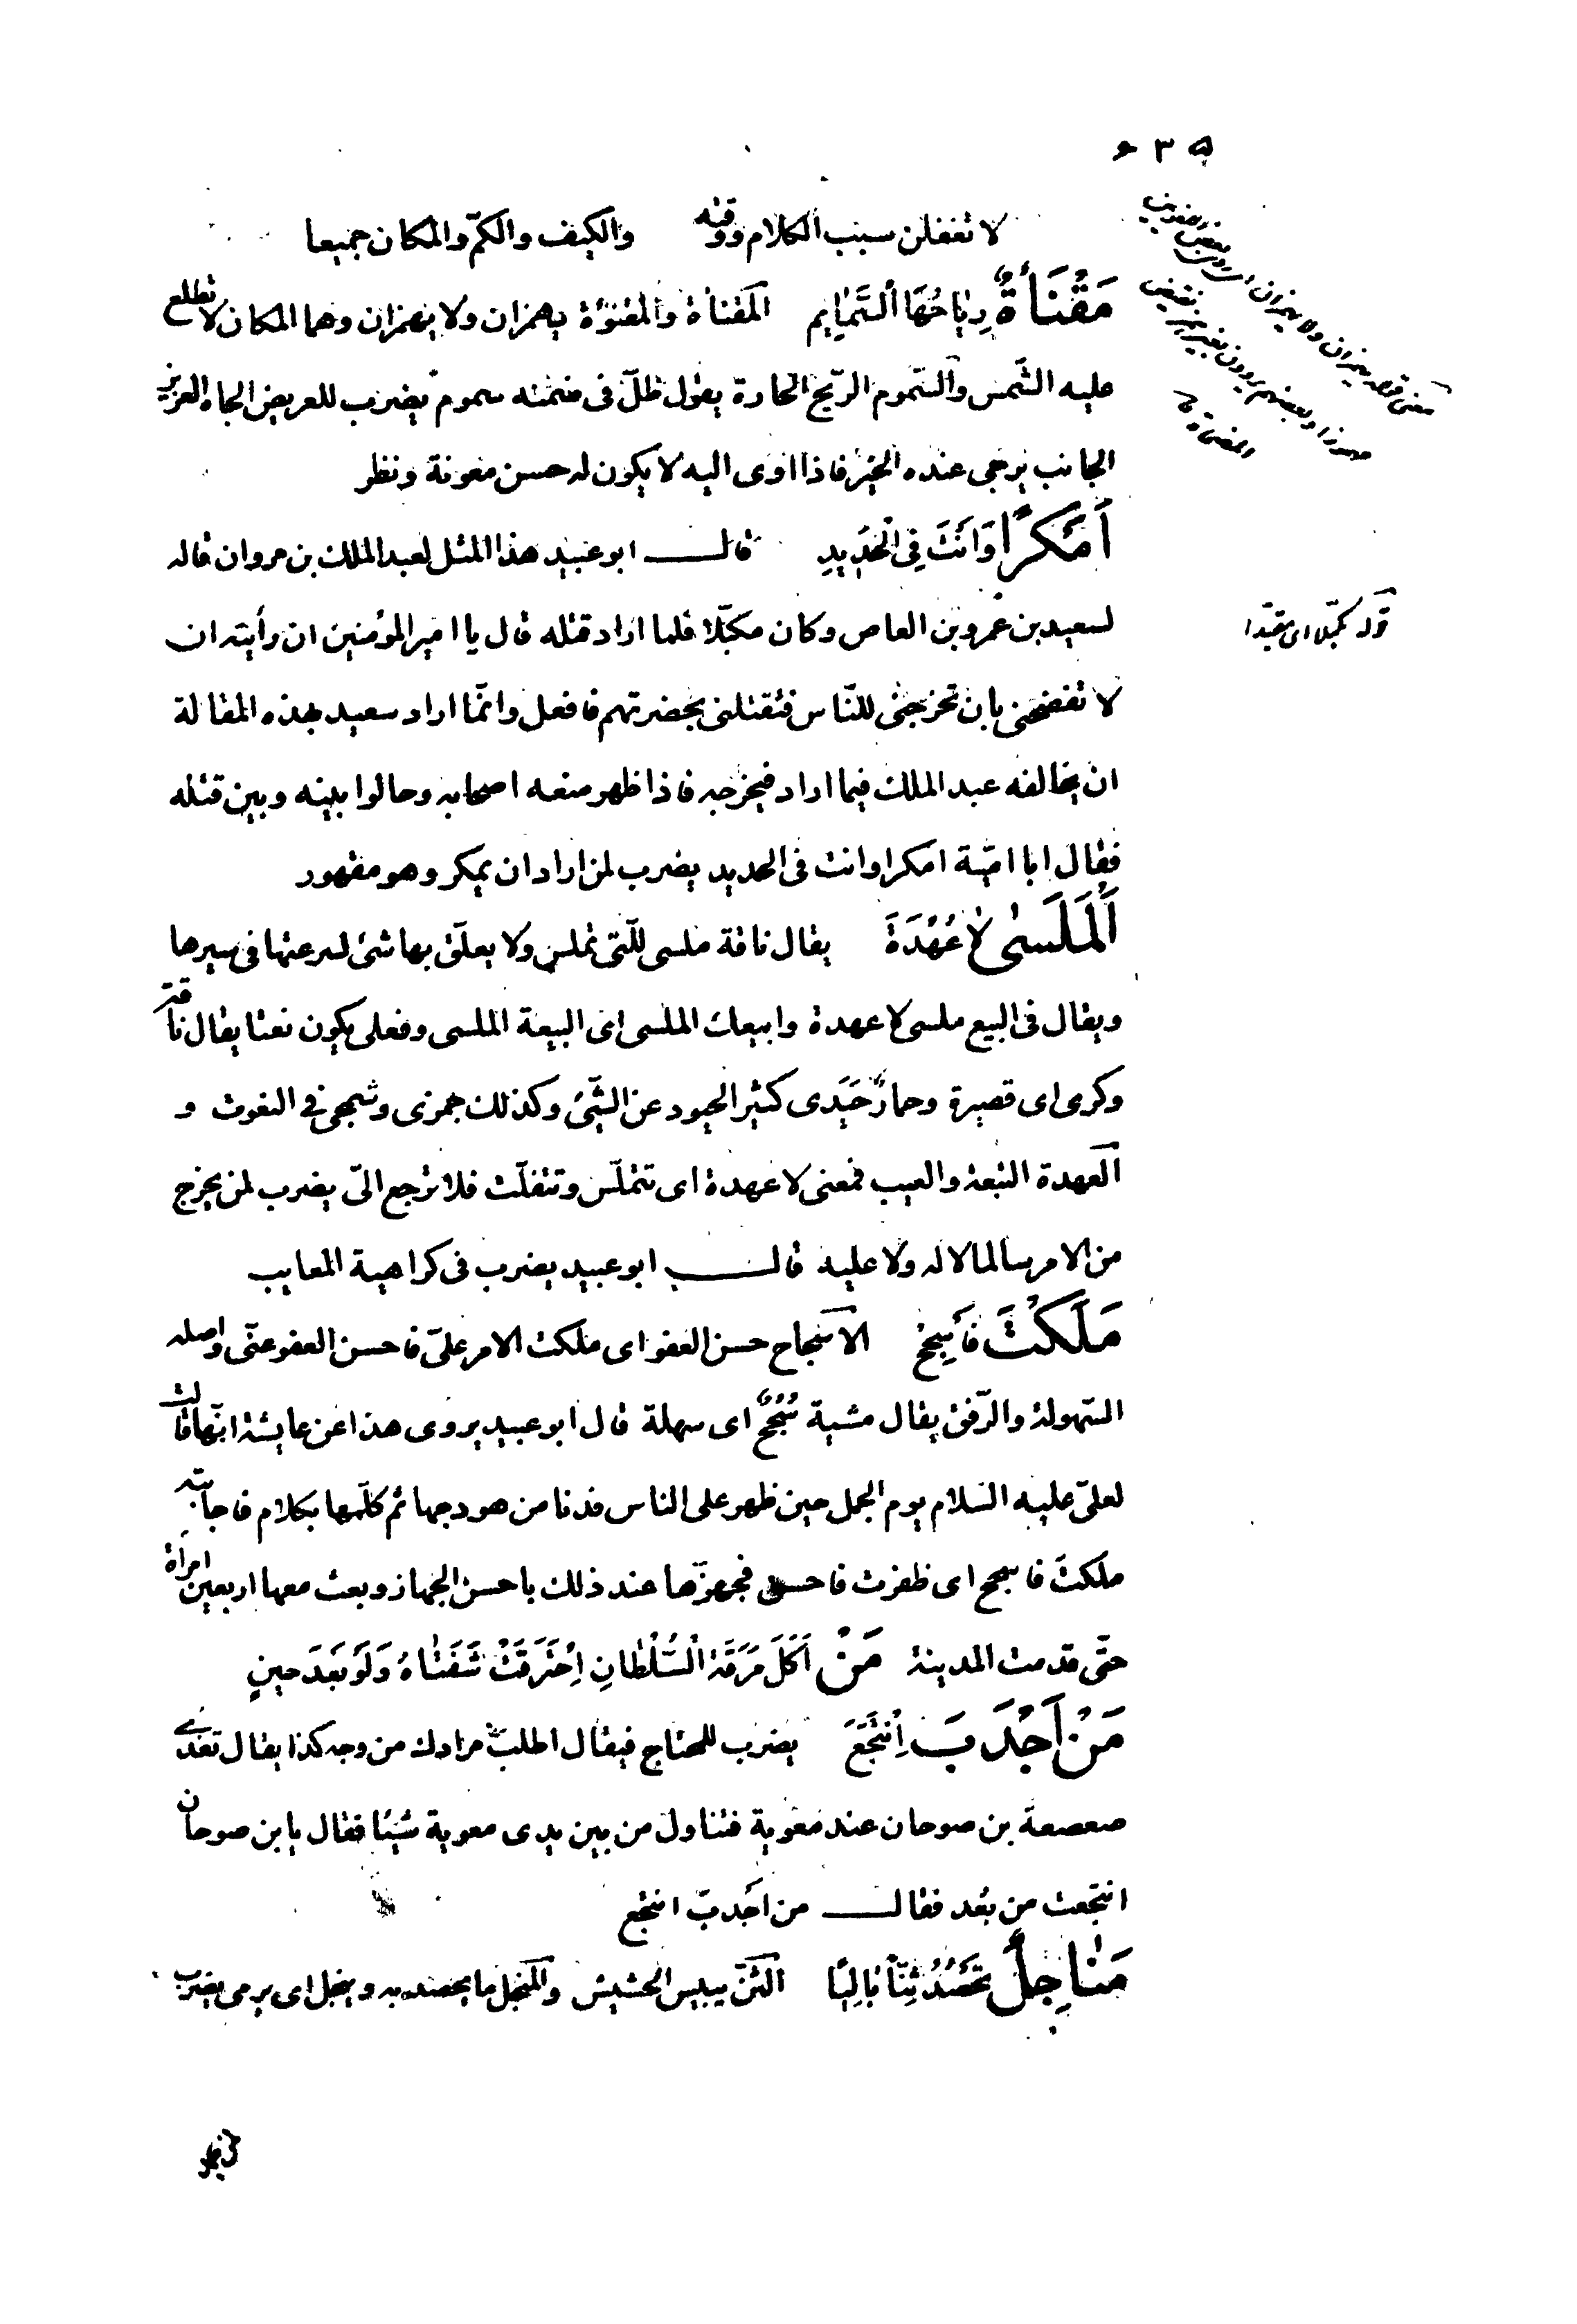 ٥٣٤
لا تغفلن سبب الكلام ووقته والكيف والكمّ والمكان جميعا
مَقْنَأَةٌ رِيَاحُهَا السَّمَايِم المقنأة والمقنوة يهمزان ولا يهمزان وهما المكان لا تطلع
عليه الشّمس والسّموم الرّيح الحارة يقول ظلّ فى ضمنه سموم يضرب للعريض الجاه العزيز
الجانب يرجى عنده الخير فاذا اوى اليه لا يكون له حسن معونة ونظر
أَمَكْرًا وَانَتَ فِى الْحَدِيدِ قال ابو عبيد هذا المثل لعبد الملك بن مروان قاله
لسعيد بن عمرو بن العاص وكان مكبّلا فلما اراد قتله قال يا امير المؤمنين ان رأيت ان
لا تفضحنى بان تخرجنى للنّاس فتقتلنى بحضرتهم فافعل وانّما اراد سعيد بهذه المقالة
ان يخالفه عبد الملك فيما اراد فيخرجه فاذا ظهر منعه اصحابه وحالوا بينه وبين قتله
فقال ابا اميّة امكرا وانت فى الحديد يضرب لمن اراد ان يمكر وهو مقهور
اَلْمَلَسَىٰ لَا عُهْدَةَ يقال ناقة ملسى للّتى تملس ولا يعلّق بها شئ لسرعتها فى سيرها
ويقال فى البيع ملسى لا عهدة وابيعك الملسى اى البيعة الملسى وفعلى يكون نعتا يقال ناقة
وكرى اى قصيرة وحمارٌ حَيَدى كثير الحيود عن الشّئ وكذلك جمزى وشمجى فى النعوت و
العهدة التبعة والعيب فمعنى لا عهدة اى تتملّس وتتفلّت فلا ترجع الىّ يضرب لمن يخرج
من الامر سالما لا له ولا عليه قال ابو عبيد يضرب فى كراهية المعايب
مَلَكْتَ فَأَسْجِحْ الاسجاح حسن العفو اى ملكت الامر علىّ فاحسن العفو عنّى واصله
السّهولة والرّفق يقال مشية سُجُحٌ اى سهلة قال ابو عبيد يروى هذا عن عايشة انّها قالت
لعلىّ عليه السلام يوم الجمل حين ظهر على الناس فدنا من هودجها ثم كلّمها بكلام فاجابته
ملكتَ فاسجح اى ظفرت فاحسن فجهزّها عند ذلك باحسن الجهاز وبعث معها اربعين امرأة
حتّى قدمت المدينة مَنْ اَكَلَ مَرَقَةَ السُّلْطَانِ اِحْتَرَقَتْ شَفَتَاهُ وَلَوْ بَعْدَ حِينٍ
مَنْ اَجْدَبَ اِنْتَجَعَ يضرب للمحتاج فيقال اطلب مرادك من وجه كذا يقال تغدّى
صعصعة بن صوحان عند معوية فتناول من بين يدى معوية شيئا فقال يا بن صوحان
انتجعت من بُعد فقال من اجدب انتجع
مَنَاجِلٌ تَحْصُدُ ثِنًّا بَالِيًا الثنّ يبيس الحشيش والمنجل ما يحصد به وينجل اى يرمى يضرب
قوله مكبّلا اى مقيّدا